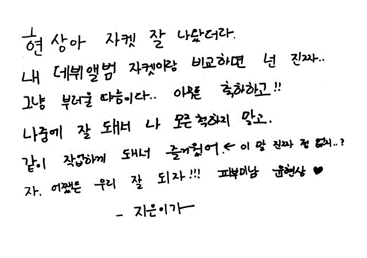 현상아 자켓 잘 나왔더라.
내 데뷔앨범 자켓이랑 비교하면 넌 진짜..
그냥 부러울 따름이다.. 아무튼 축하하고!!
나중에 잘 돼서 나 모른척하지 말고.
같이 작업하게 돼서 즐거웠어. ← 이 말 진짜 점 없지..?
자. 어쨌든 우리 잘 되자!!! 피부미남 윤현상 ♥
- 지은이가